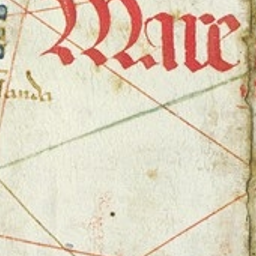 Mare
anda